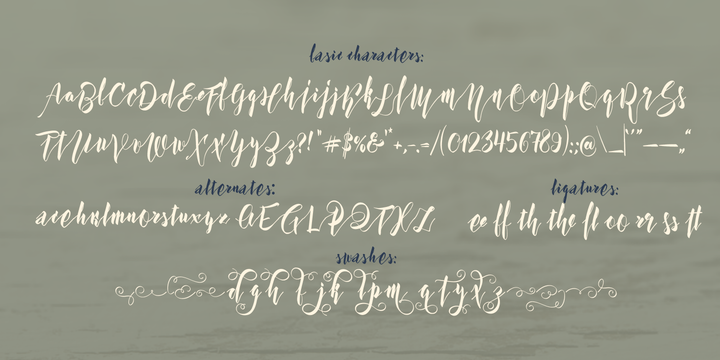 basic characters:
AaBbCcDdEeFfGgHhIiJjKkLlMmNnOoPpQqRrSs
TtUuVvWwXxYyZz?!"#$%&'*+,-.=/(0123456789):;@\_|''""—–„"
alternates: ligatures:
acehklmnorstuxyz AEGLPQTXZ ee ff th the fl oo rr ss tt
swashes:
dgh fjk lpm qtyxz